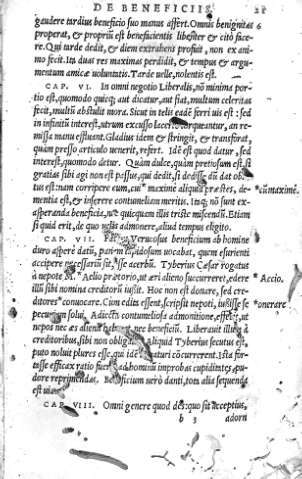 DE BENEFICIIS 21
gaudere tardius beneficio suo manus affert. Omnis benignitas 6
properat, & propriũ est beneficientis libẽter & citò face
re. Qui tarde dedit, & diem extrahens profuit, non ex ani
mo fecit. Ita duas res maximas perdidit, & tempus & argu-
mentum amicæ voluntatis. Tarde velle, nolentis est.
CAP. VI. In omni negotio Liberalis, nõ minima por
tio est, quomodo quicq; aut dicatur, aut fiat, multum celeritas
fecit, multũ abstulit mora. Sicut in telis eadẽ ferri uis est: sed
in infinitũ interest, utrum excusso lacerto torqueantur, an re-
missa manu effluant. Gladius idem & stringit, & transforat,
quàm presso articulo uenerit, refert. Idẽ est quod datur, sed
interest, quomodo detur. Quàm dulce, quàm pretiosum est, si
gratias sibi agi non est passus, qui dedit, si dedisse dũ dat obli
tus est: nam corripere eum, cui maximè aliquid præstes, de- *cũmaximè.
mentia est, & inserere contumeliam meritis. Inq; nõ sunt ex-
asperanda beneficia, quicquam illis triste miscendũ. Etiam
si quid erit, de quo uelis admonere, aliud tempus eligito.
CAP. VII. Verrucosus beneficium ab homine
duro asperè datũ, panem lapidosum vocabat, quem esurienti
accipere necessariũ sit, esse acerbũ. Tyberius Cæsar rogatus
à nepote Aelio prætorio, ut æri alieno succurreret, edere *Accio.
illũ sibi nomina creditorũ iussit. Hoc non est donare, sed cre
ditores convocare. Cum editi essent, scripsit nepoti, iussisse se *onerare
pecuniam solui. Adiecta contumeliosa admonitione, effecit, ut
nepos nec æs alienum haberet nec beneficiũ. Liberauit illũ à
creditoribus, sibi non obligauit. aliquid Tyberius secutus est,
puto noluit plures esse, qui idẽ rogaturi cõcurrerent. Ista for-
tasse efficax ratio fuerit ad hominũ improbas cupiditates pu-
dore reprimendas. Beneficium uerò danti, tota alia sequenda
est uia.
CAP. VIII. Omni genere quod des: quo sit acceptius,
b 3 adorn